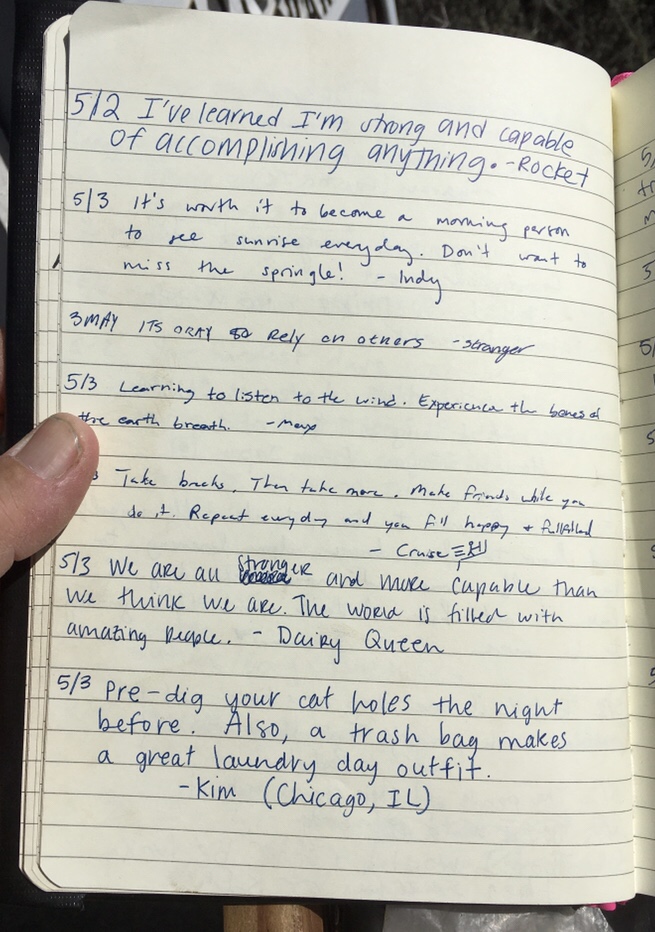 5/2 I've learned I'm strong and capable
of accomplishing anything. -Rocket
5/3 It's worth it to become a morning person
to see sunrise everyday. Don't want to
miss the springle! - Indy
3 MAY ITS OKAY to Rely on others -Stranger
5/3 Learning to listen to the wind. Experience the bones of
the earth breath. -
3 Take breaks. Then take more. Make friends while you
do it. Repeat everyday and you fill happy + fullfilled
- Cruise
5/3 We are all stronger and more capable than
we think we are. The world is filled with
amazing people. - Dairy Queen
5/3 Pre-dig your cat holes the night
before. Also, a trash bag makes
a great laundry day outfit.
-Kim (Chicago, IL)